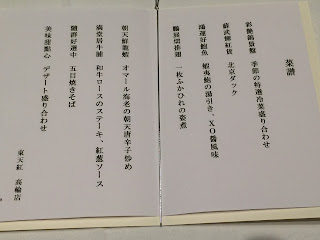 菜譜
彩艶錦景盤 季節の特選冷菜盛り合わせ
蘇武御紅貨 北京ダック
鴻運好鮑魚 蝦夷鮑の湯引き、XO醤風味
鵬展翅排翅 一枚ふかひれの姿煮
朝天鮮龍蝦 オマール海老の朝天唐辛子炒め
満堂居牛脯 和牛ロースのステーキ、紅葱ソース
闔群好選中 五目焼きそば
美味甜點心 デザート盛り合わせ
東天紅 高輪店